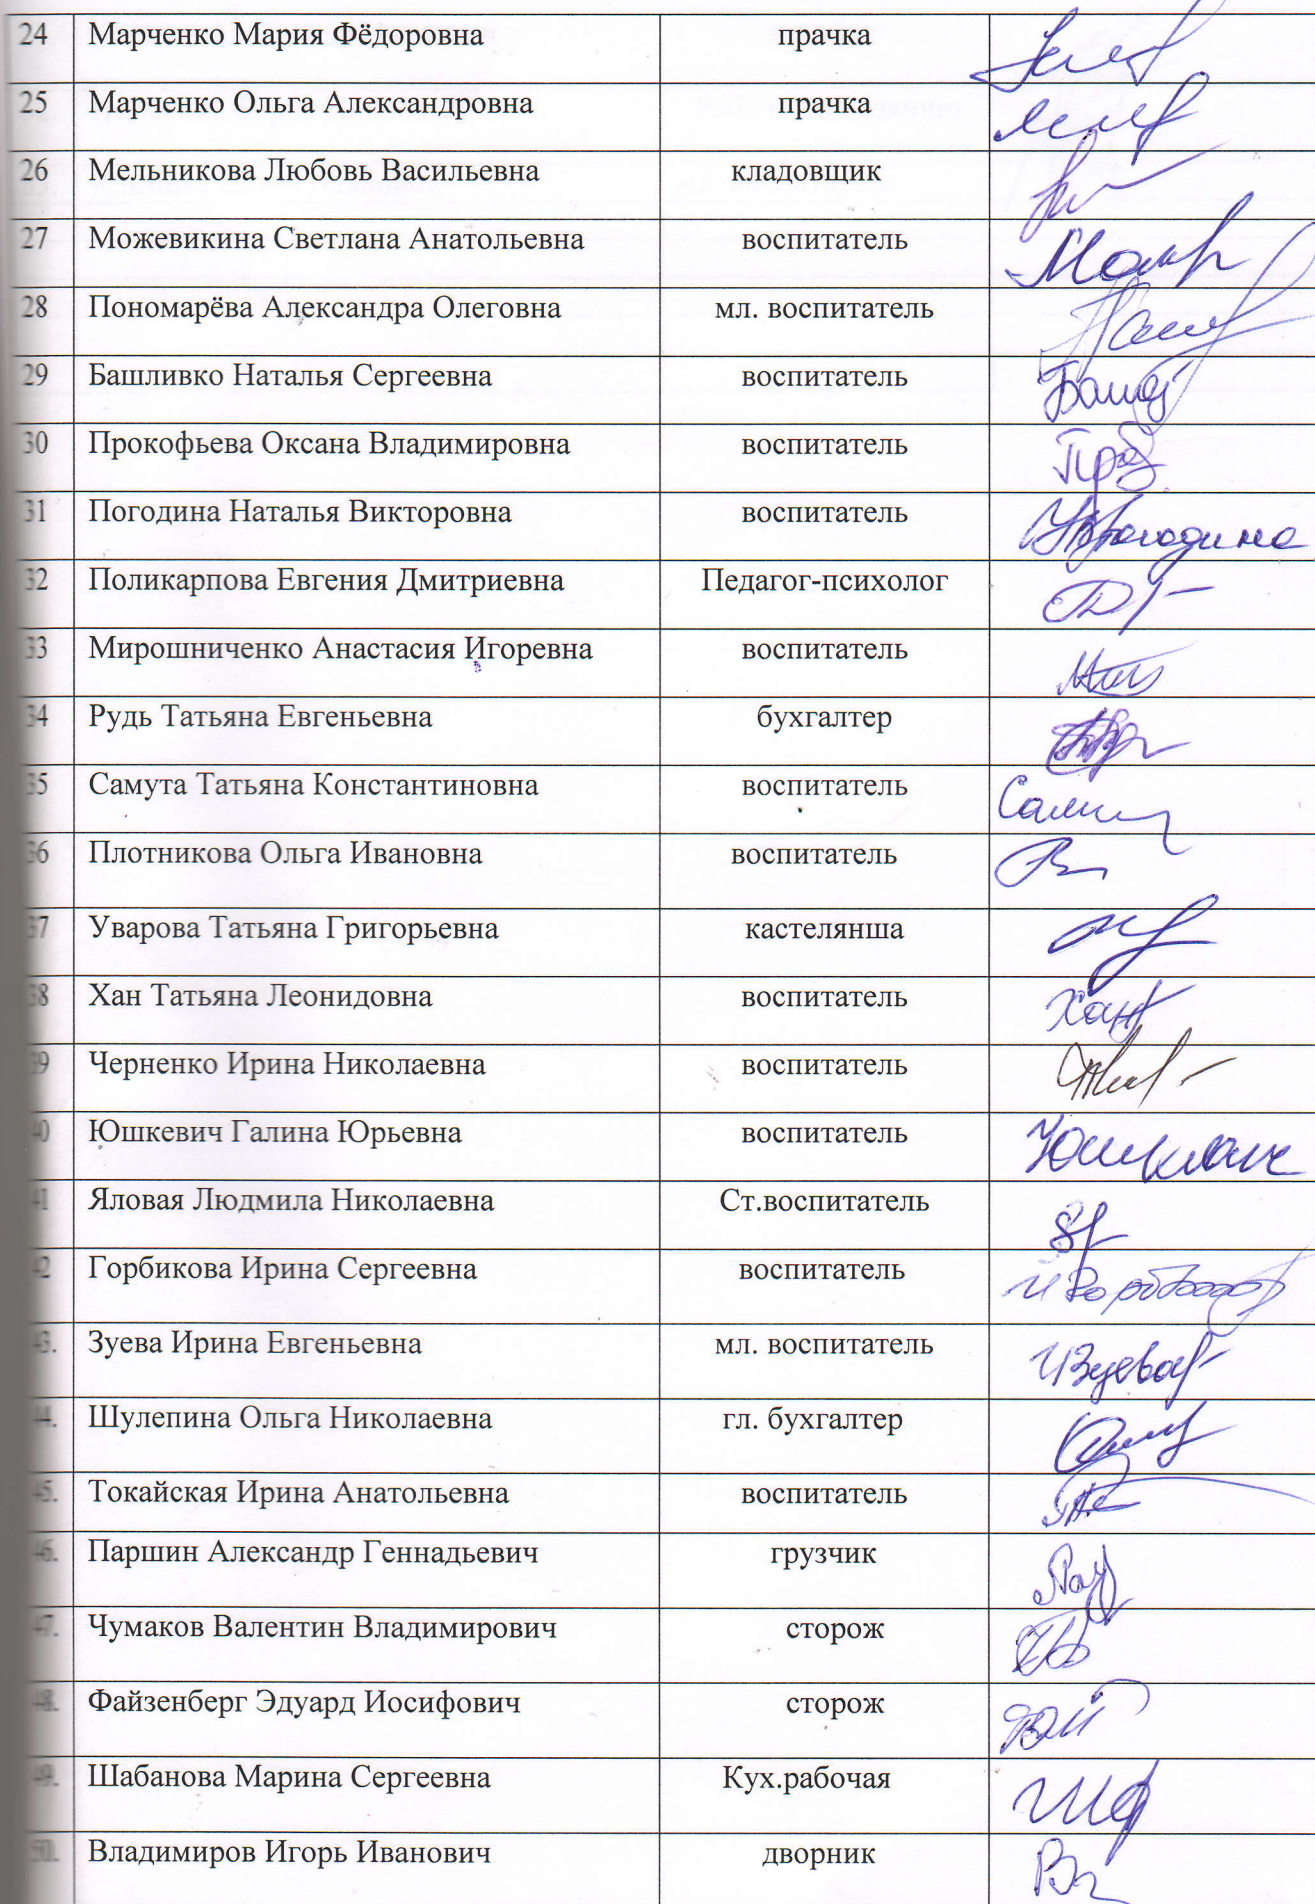 24 Марченко Мария Фёдоровна прачка
25 Марченко Ольга Александровна прачка
26 Мельникова Любовь Васильевна кладовщик
27 Можевикина Светлана Анатольевна воспитатель
28 Пономарёва Александра Олеговна мл. воспитатель
29 Башливко Наталья Сергеевна воспитатель
30 Прокофьева Оксана Владимировна воспитатель
31 Погодина Наталья Викторовна воспитатель
32 Поликарпова Евгения Дмитриевна Педагог-психолог
33 Мирошниченко Анастасия Игоревна воспитатель
34 Рудь Татьяна Евгеньевна бухгалтер
35 Самута Татьяна Константиновна воспитатель
36 Плотникова Ольга Ивановна воспитатель
37 Уварова Татьяна Григорьевна кастелянша
38 Хан Татьяна Леонидовна воспитатель
39 Черненко Ирина Николаевна воспитатель
40 Юшкевич Галина Юрьевна воспитатель
41 Яловая Людмила Николаевна Ст.воспитатель
42 Горбикова Ирина Сергеевна воспитатель
43. Зуева Ирина Евгеньевна мл. воспитатель
44. Шулепина Ольга Николаевна гл. бухгалтер
45. Токайская Ирина Анатольевна воспитатель
46. Паршин Александр Геннадьевич грузчик
47. Чумаков Валентин Владимирович сторож
48. Файзенберг Эдуард Иосифович сторож
49. Шабанова Марина Сергеевна Кух.рабочая
50. Владимиров Игорь Иванович дворник